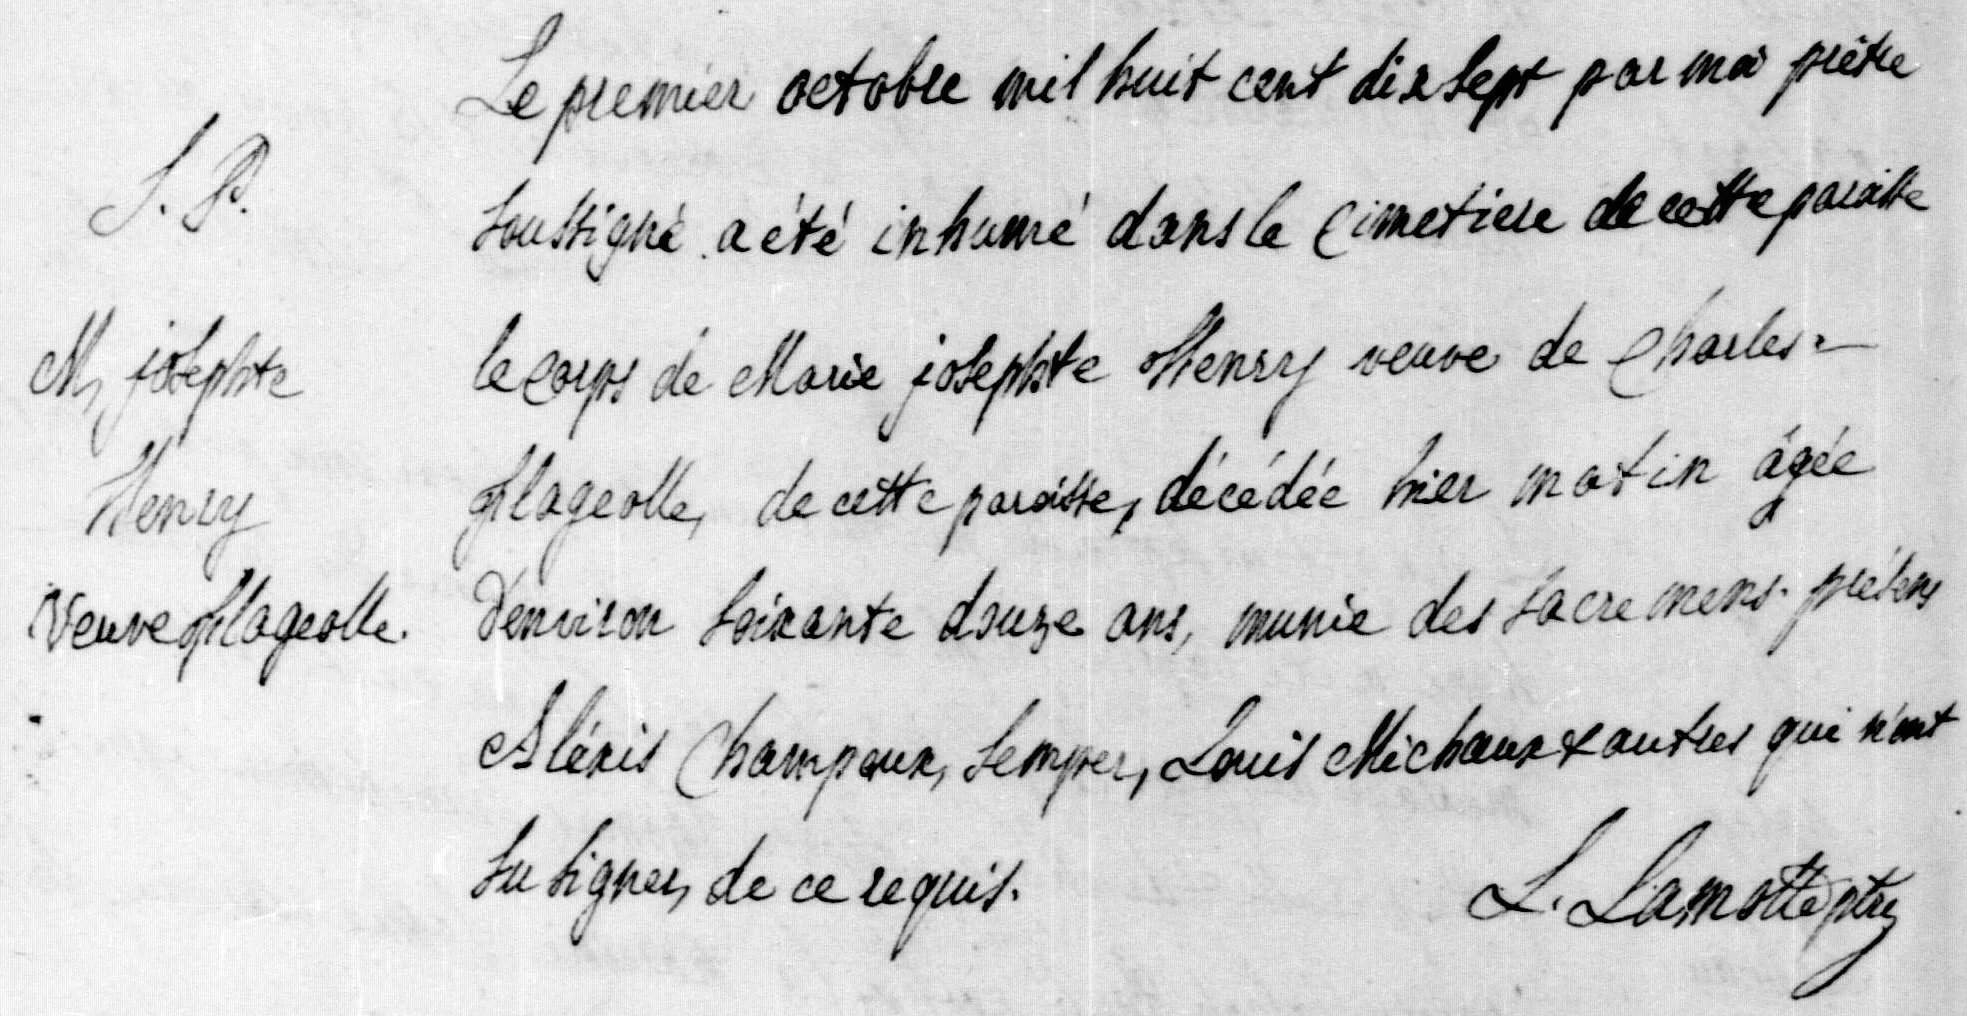 S. P.
M, josephte
Henry
Veuve fflageolle.
Le premier octobre mil huit cent dix sept par moi prêtre
soussigné a été inhumé dans le Cimetiere de cette paroisse
le Corps de Marie josephte Henry veuve de Charles
fflageolle, de cette paroisse, décédée hier matin âgée
d'environ soixante douze ans, munie des sacremens. présens
Aléxis Champoux, Semper, Louis Michaux & autres qui n'ont
su signer, de ce requis.
L. Lamotte ptre